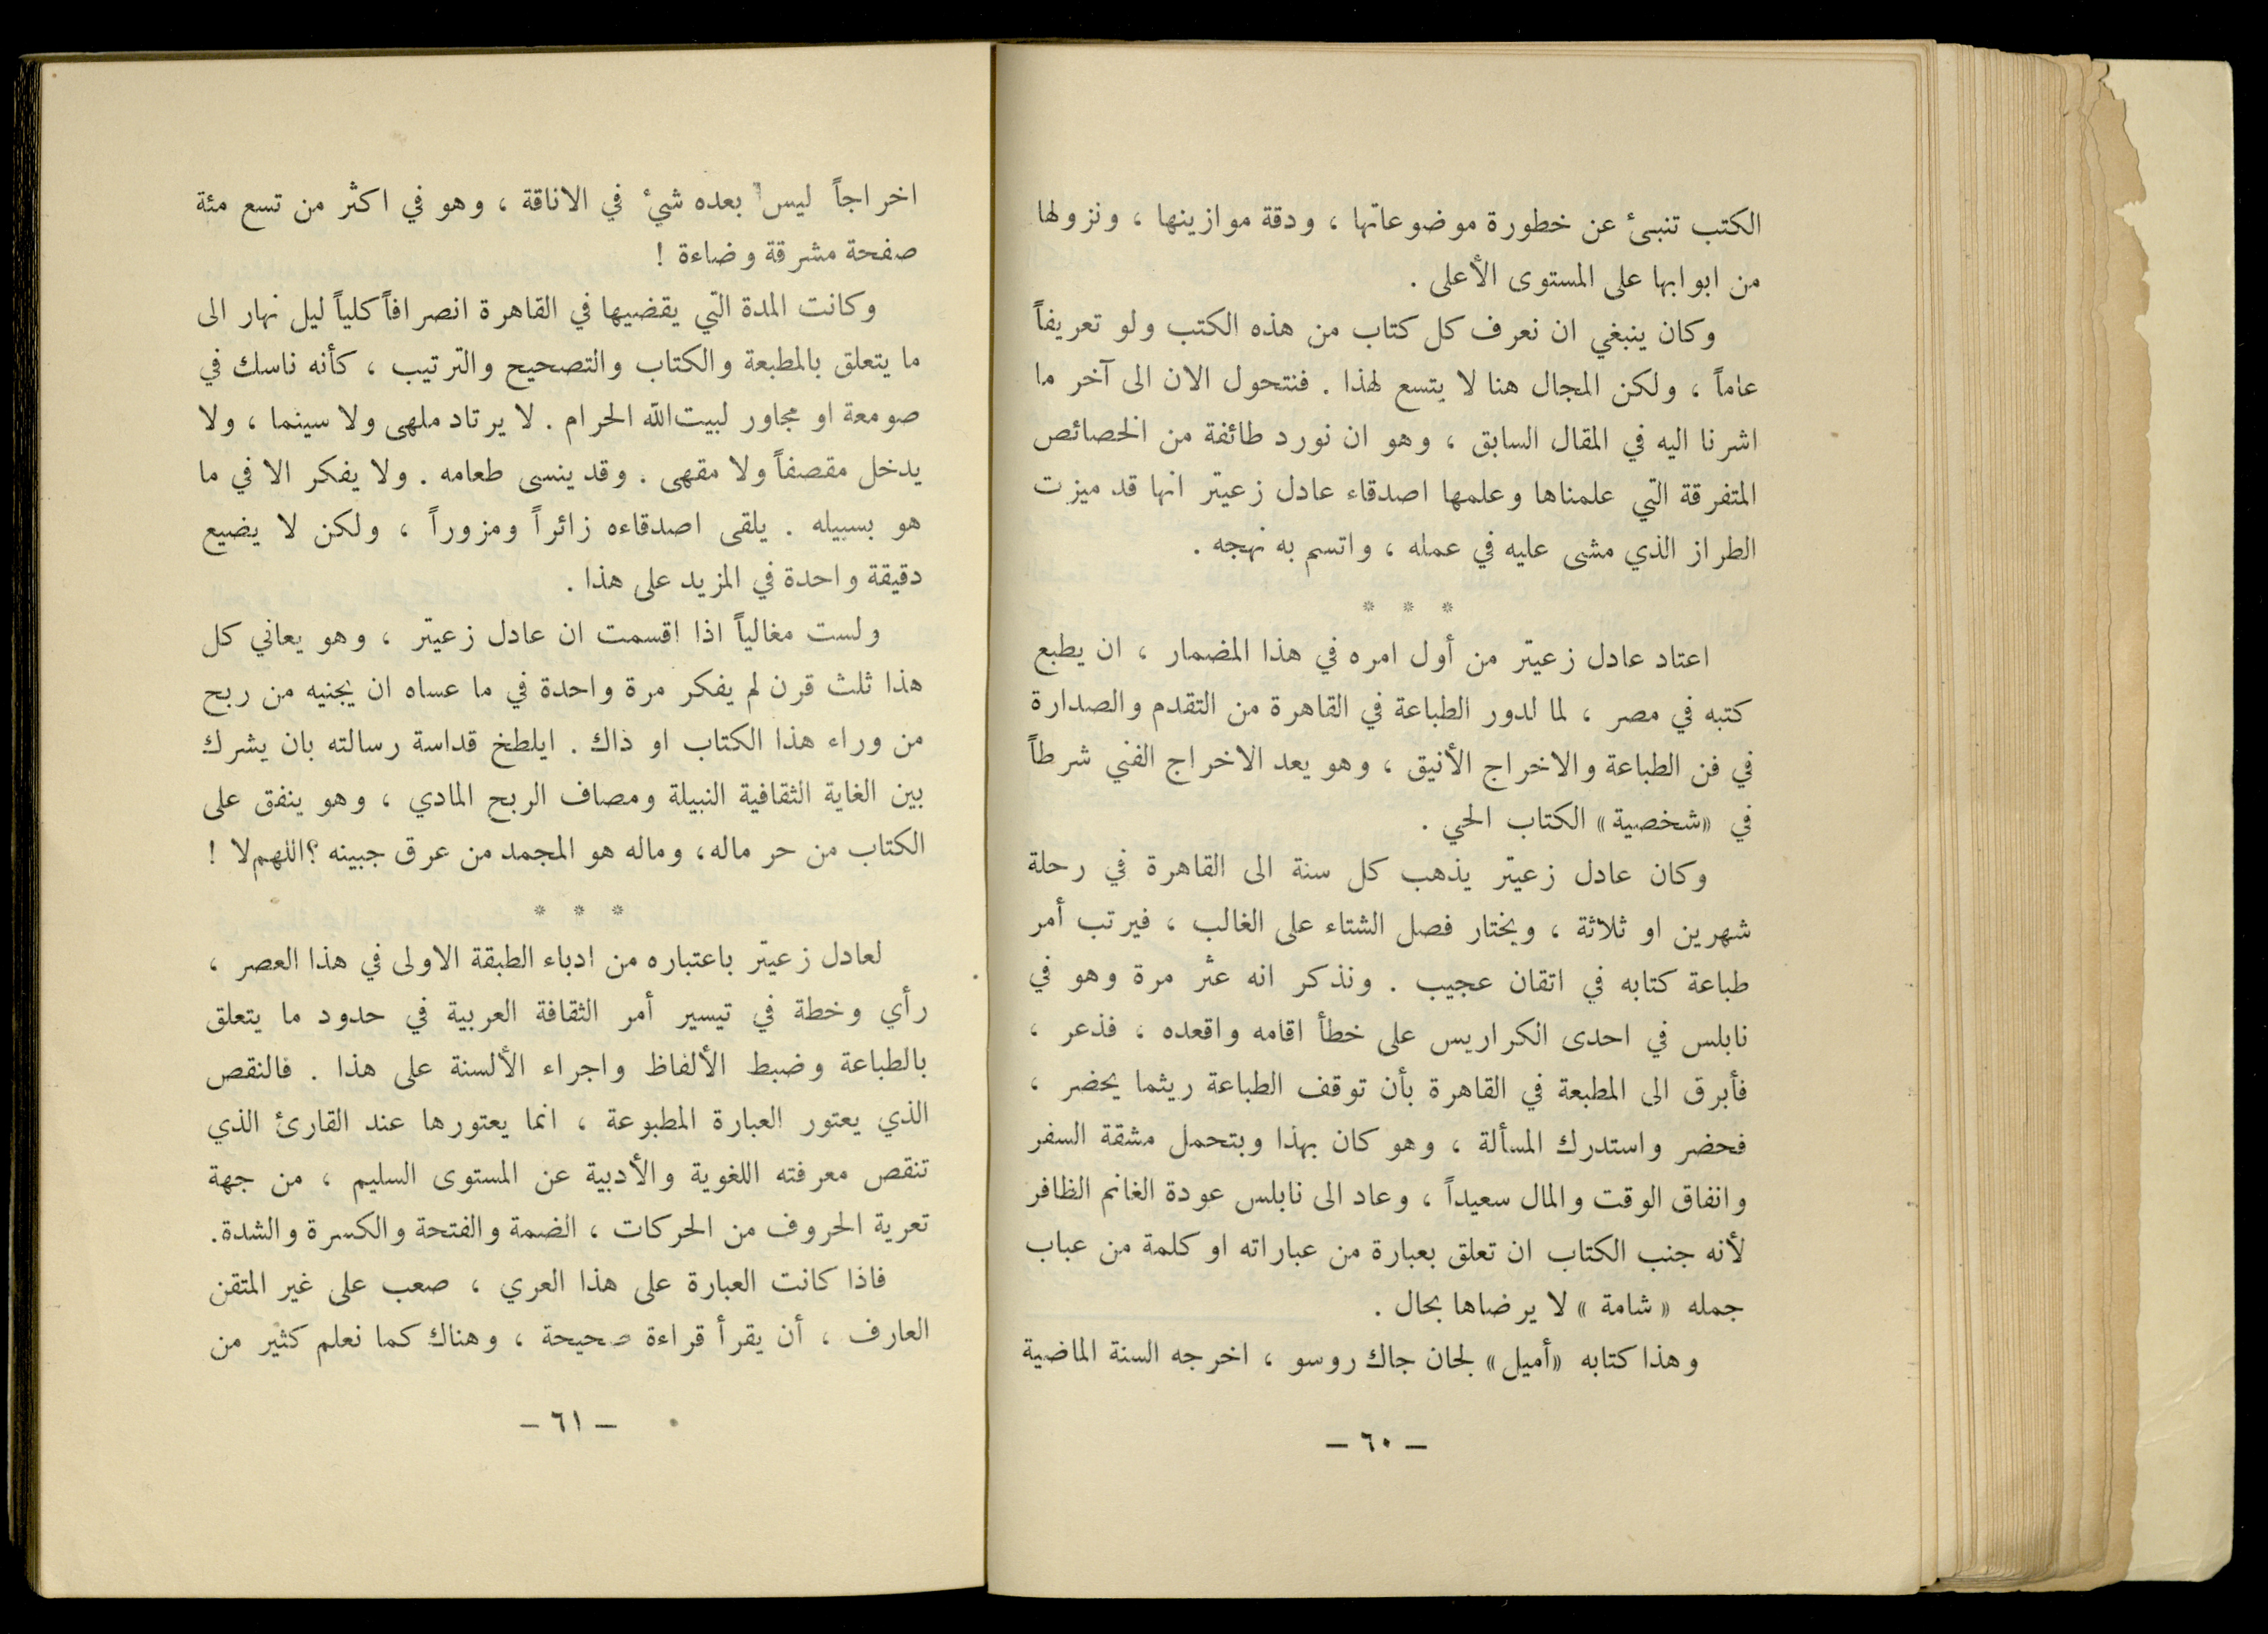 الكتب تنبئ عن خطورة موضوعاتها ، ودقة موازينها ، ونزولها
من ابوابها على المستوى الأعلى .
وكان ينبغي ان نعرف كل كتاب من هذه الكتب ولو تعريفاً
عاماً ، ولكن المجال هنا لا يتسع لهذا . فنتحول الان الى آخر ما
اشرنا اليه في المقال السابق ، وهو ان نورد طائفة من الخصائص
المتفرقة التي علمناها وعلمها اصدقاء عادل زعيتر انها قد ميزت
الطراز الذي مشى عليه في عمله ، واتسم به نهجه .
* * *
اعتاد عادل زعيتر من أول امره في هذا المضمار ، ان يطبع
كتبه في مصر ، لما لدور الطباعة في القاهرة من التقدم والصدارة
في فن الطباعة والاخراج الأنيق ، وهو يعد الاخراج الفني شرطاً
في «شخصية» الكتاب الحي .
وكان عادل زعيتر يذهب كل سنة الى القاهرة في رحلة
شهرين او ثلاثة ، ويختار فصل الشتاء على الغالب ، فيرتب أمر
طباعة كتابه في اتقان عجيب . ونذكر انه عثر مرة وهو في
نابلس في احدى الكراريس على خطأ اقامه واقعده ، فذعر ،
فأبرق الى المطبعة في القاهرة بأن توقف الطباعة ريثما يحضر ،
فحضر واستدرك المسألة ، وهو كان بهذا وبتحمل مشقة السفر
وانفاق الوقت والمال سعيداً ، وعاد الى نابلس عودة الغانم الظافر
لأنه جنب الكتاب ان تعلق بعبارة من عباراته او كلمة من عباب
جمله «شامة» لا يرضاها بحال .
وهذا كتابه «أميل» لجان جاك روسو ، اخرجه السنة الماضية
– ٦٠ –
اخراجاً ليس بعده شيء في الاناقة ، وهو في اكثر من تسع مئة
صفحة مشرقة وضاءة !
وكانت المدة التي يقضيها في القاهرة انصرافاً كلياً ليل نهار الى
ما يتعلق بالمطبعة والكتاب والتصحيح والترتيب ، كأنه ناسك في
صومعة او مجاور لبيت الله الحرام . لا يرتاد ملهى ولا سينما ، ولا
يدخل مقصفاً ولا مقهى . وقد ينسى طعامه . ولا يفكر الا في ما
هو بسبيله . يلقى اصدقاءه زائراً ومزوراً ، ولكن لا يضيع
دقيقة واحدة في المزيد على هذا .
ولست مغالياً اذا اقسمت ان عادل زعيتر ، وهو يعاني كل
هذا ثلث قرن لم يفكر مرة واحدة في ما عساه ان يجنيه من ربح
من وراء هذا الكتاب او ذاك . ايلطخ قداسة رسالته بان يشرك
بين الغاية الثقافية النبيلة ومصاف الربح المادي ، وهو ينفق على
الكتاب من حر ماله، وماله هو المجمد من عرق جبينه ؟ اللهم لا !
* * *
لعادل زعيتر باعتباره من ادباء الطبقة الاولى في هذا العصر ،
رأي وخطة في تيسير أمر الثقافة العربية في حدود ما يتعلق
بالطباعة وضبط الألفاظ واجراء الألسنة على هذا . فالنقص
الذي يعتور العبارة المطبوعة ، انما يعتورها عند القارئ الذي
تنقص معرفته اللغوية والأدبية عن المستوى السليم ، من جهة
تعرية الحروف من الحركات ، الضمة والفتحة والكسرة والشدة.
فاذا كانت العبارة على هذا العري ، صعب على غير المتقن
العارف ، أن يقرأ قراءة صحيحة ، وهناك كما نعلم كثير من
– ٦١ –